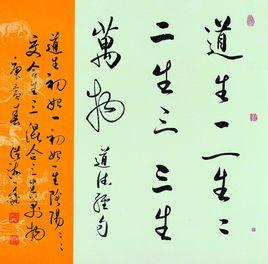 道生一一生二
二生三三生
萬物
道德經句
道生初始一初始一生陰陽二二
交合生三混合三生万物
庚寅春